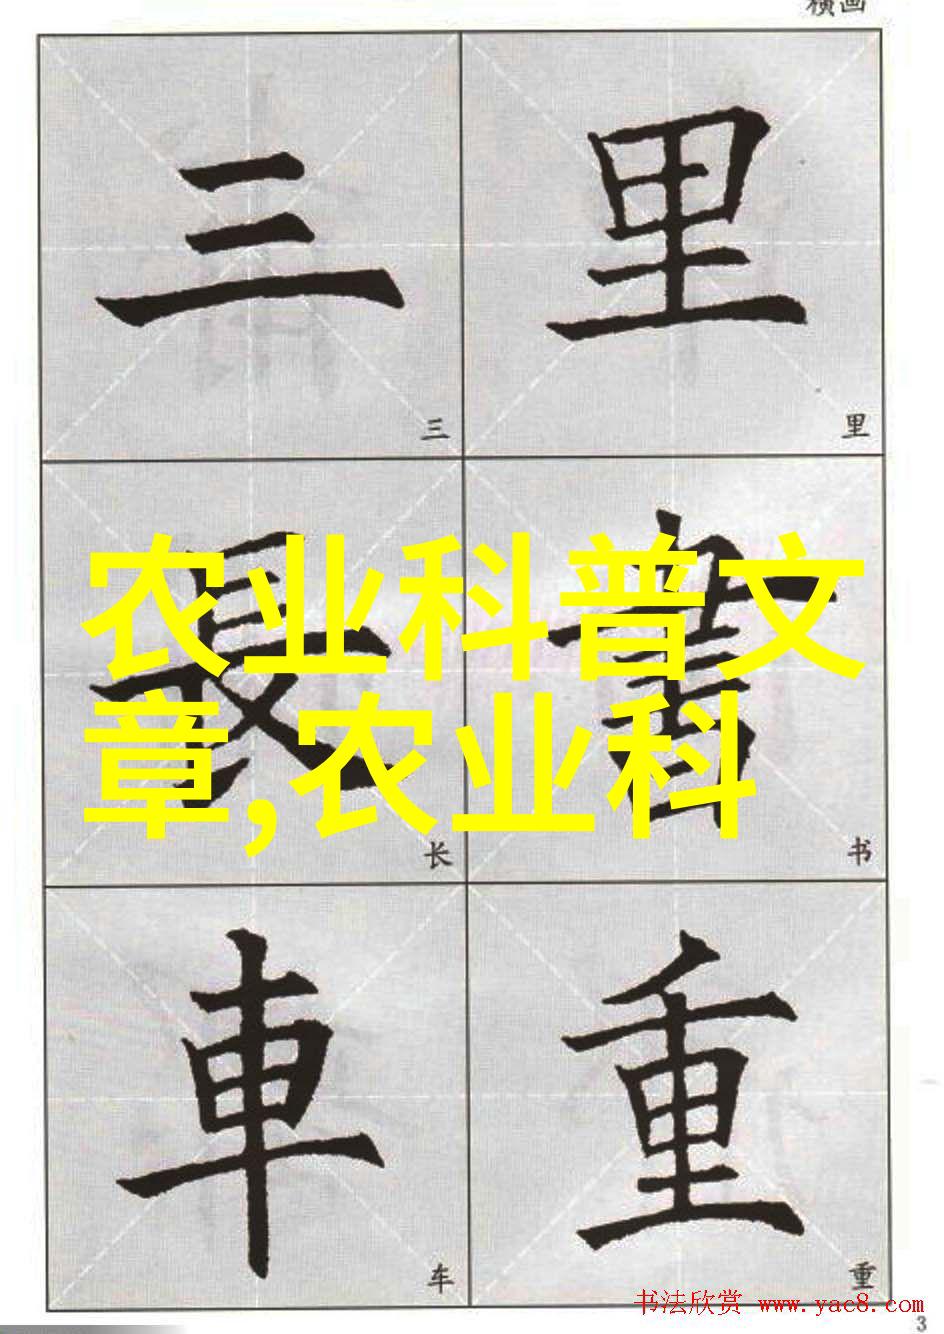 横画
三 里
三 里
農業科普文
章,农业科
長 書
长 书
車 重
车 重
书法欣赏 www.yac8.com
3